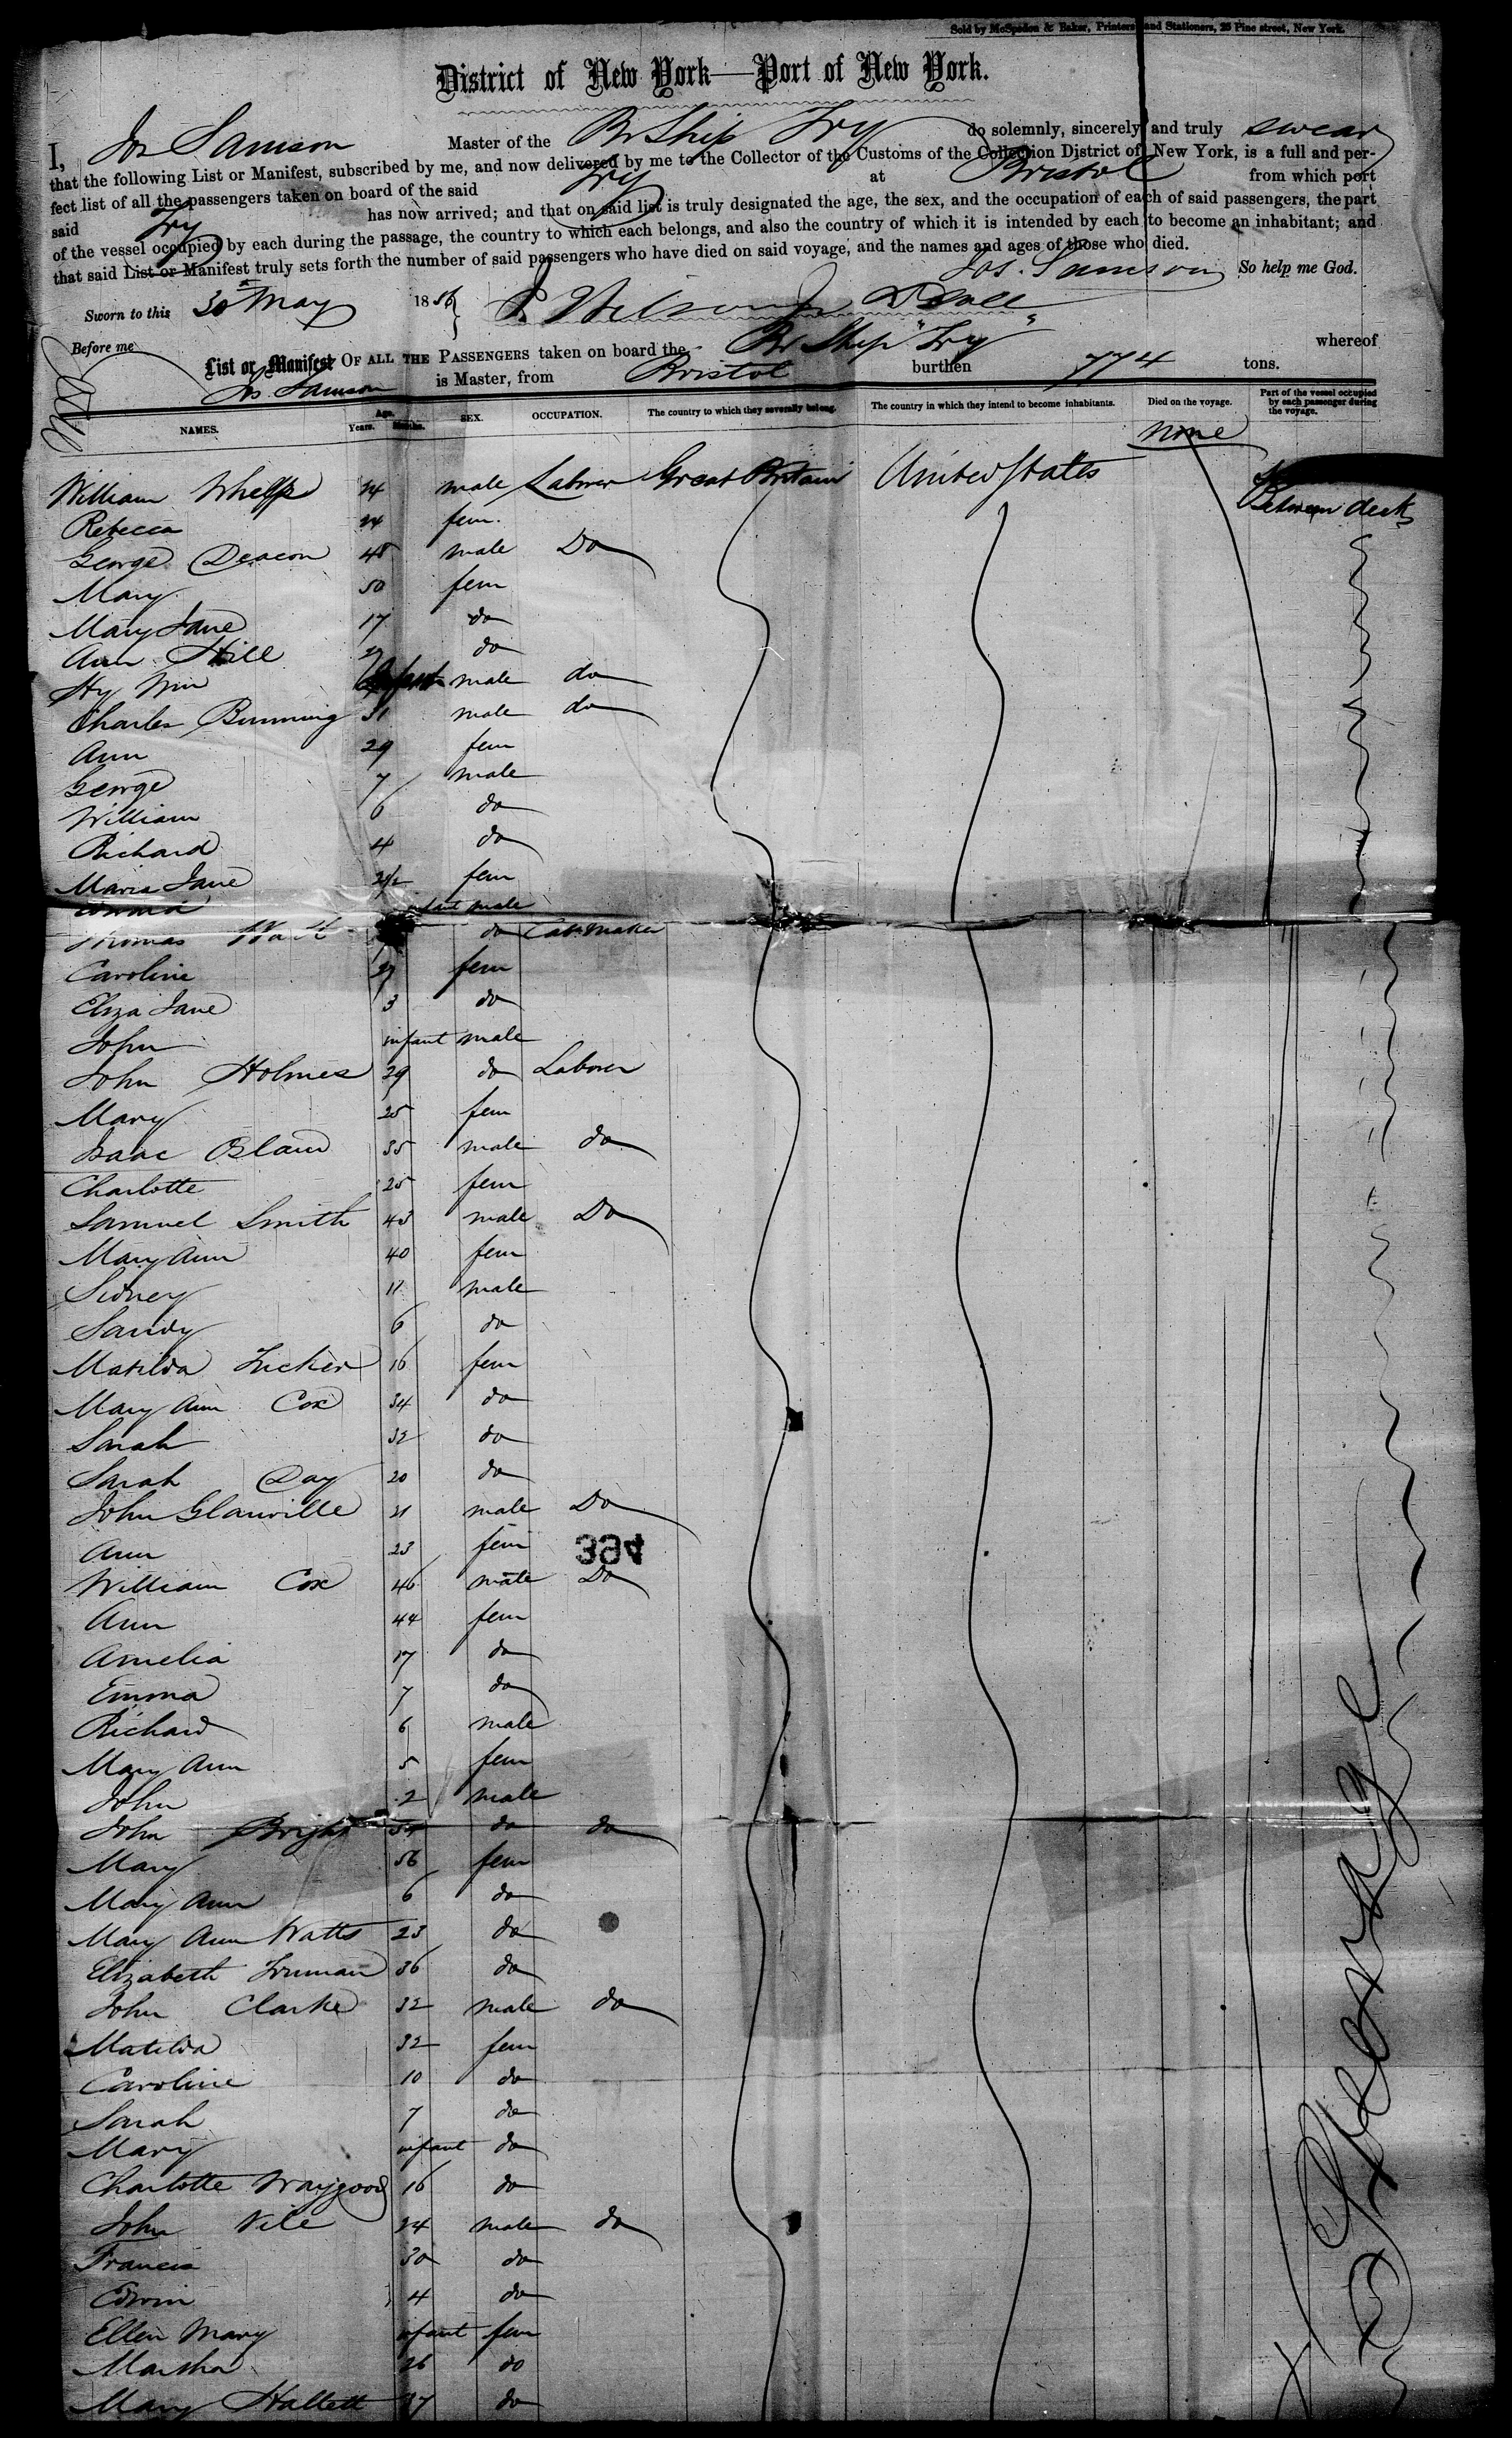 Sold by McSpedon & Baker, Printers and Stationers, 25 Pine street, New York.
District of New York—Port of New York.
I, Jos Samson Master of the Br Ship Try do solemnly, sincerely and truly swear
that the following List or Manifest, subscribed by me, and now delivered by me to the Collector of the Customs of the Collection District of New York, is a full and per-
fect list of all the passengers taken on board of the said Try at Bristol from which port
said Try has now arrived; and that on said list is truly designated the age, the sex, and the occupation of each of said passengers, the part
of the vessel occupied by each during the passage, the country to which each belongs, and also the country of which it is intended by each to become an inhabitant; and
that said List or Manifest truly sets forth the number of said passengers who have died on said voyage, and the names and ages of those who died.
Jos. Samson So help me God.
Sworn to this 30 May 1856
Before me
List or Manifest OF ALL THE PASSENGERS taken on board the Br Ship "Try" whereof
Jos. Samson is Master, from Bristol burthen 774 tons.
NAMES. Age. Years. Months. SEX. OCCUPATION. The country to which they severally belong. The country in which they intend to become inhabitants. Died on the voyage. Part of the vessel occupied by each passenger during the voyage.
none
William 24 male Laborer Great Britain United States Between decks
Rebecca 24 fem.
George Deacon 48 male Do
Mary 50 fem
Mary Jane 17 do
Ann Hill do
Hy Wm Infant male do
Charles Bunning 31 male do
Ann 29 fem
George 7 male
William 6 do
Richard 4 do
Maria Jane 2½ fem
Edward infant male
Thomas do Cab. Maker
Caroline 27 fem
Eliza Jane 3 do
John infant male
John Holmes 29 do Laborer
Mary 25 fem
Isaac Bland 35 male do
Charlotte 25 fem
Samuel Smith 43 male Do
Mary Ann 40 fem
Sidney 11 male
Sandy 6 do
Matilda Tucker 16 fem
Mary Ann Cox 34 do
Sarah 32 do
Sarah Day 20 do
John Glanville 21 male Do
Ann 23 fem
394
William Cox 46 male Do
Ann 44 fem
Amelia 17 do
Emma 7 do
Richard 6 male
Mary Ann 5 fem
John 2 male
John Bright 54 do do
Mary 56 fem
Mary Ann 6 do
Mary Ann Watts 23 do
Elizabeth Truman 36 do
John Clarke 32 male do
Matilda 32 fem
Caroline 10 do
Sarah 7 do
Mary infant do
Charlotte Waygood 16 do
John Vile 24 male do
Francis 30 do
Edwin 4 do
Ellen Mary infant fem
Martha 26 do
Mary Hallett 37 do
Steerage